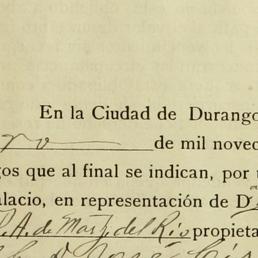 En la Ciudad de Durango
de mil noved
gos que al final se indican, por
alacio, en representación de D
P. A. de Martz. del Rio propieta